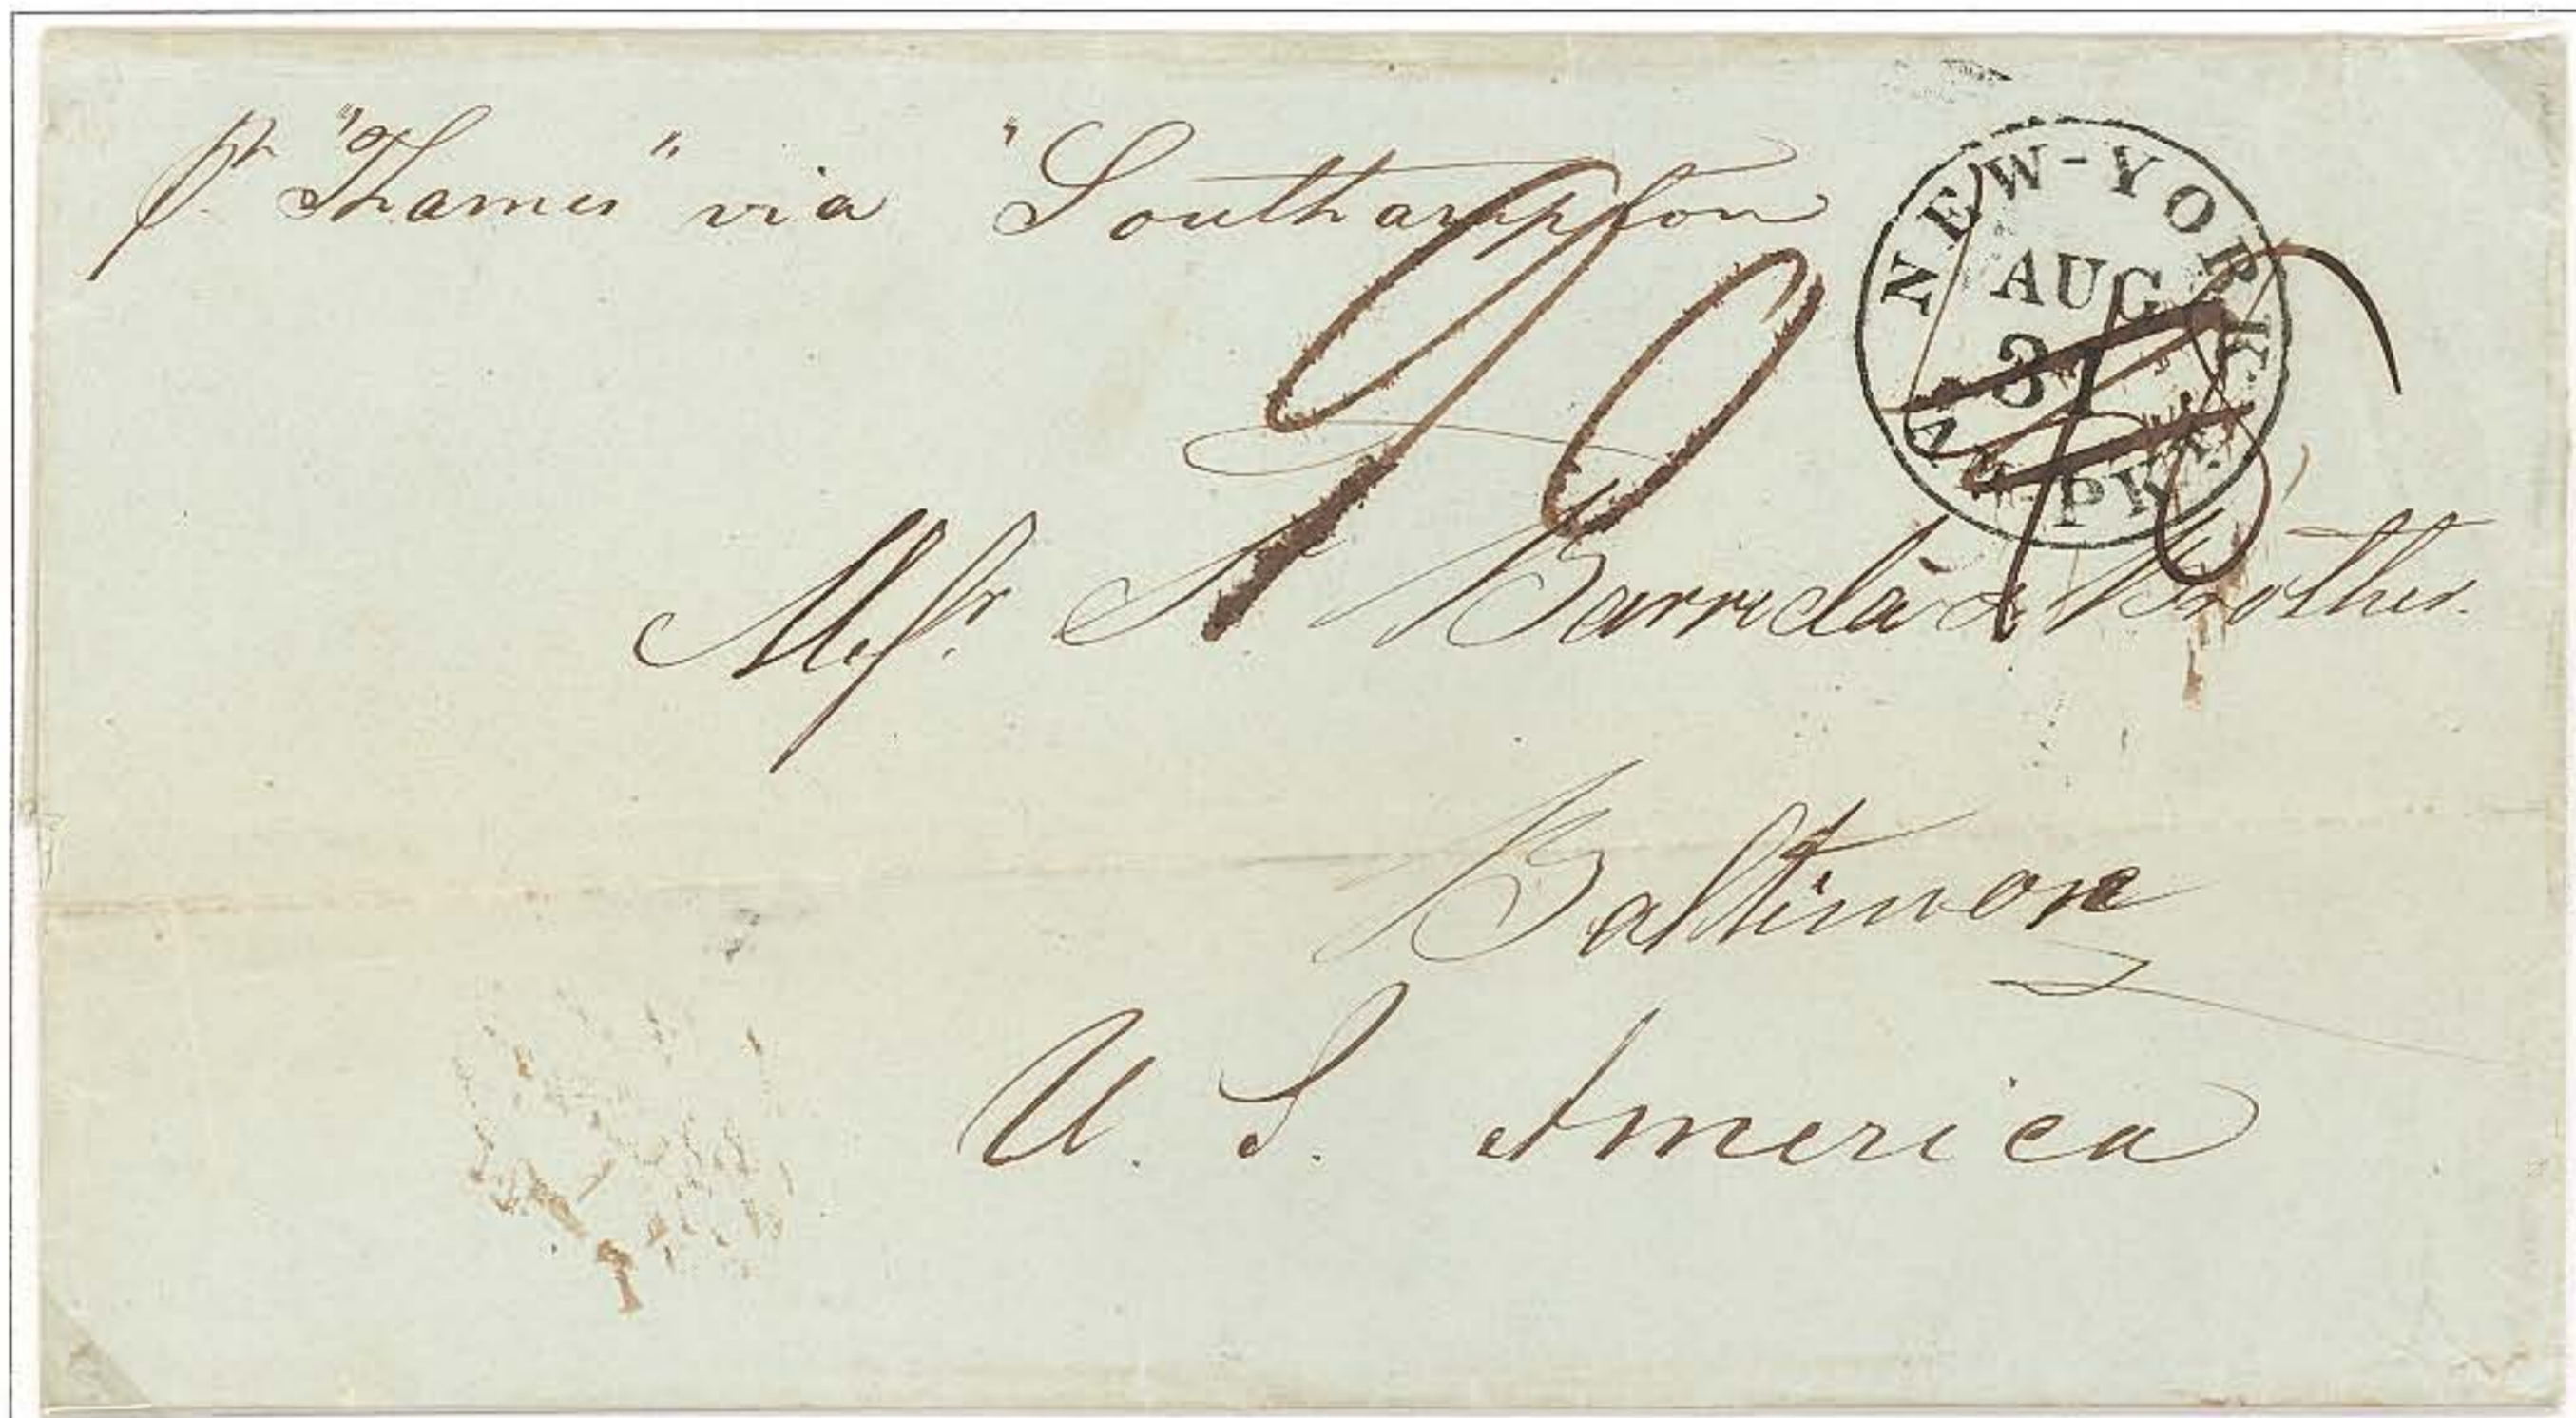 pr "Thames" via "Southampton
90
NEW-YORK
AUG
31
AM. PKT.
Messr Barreda & Brother.
Baltimore
U. S. America